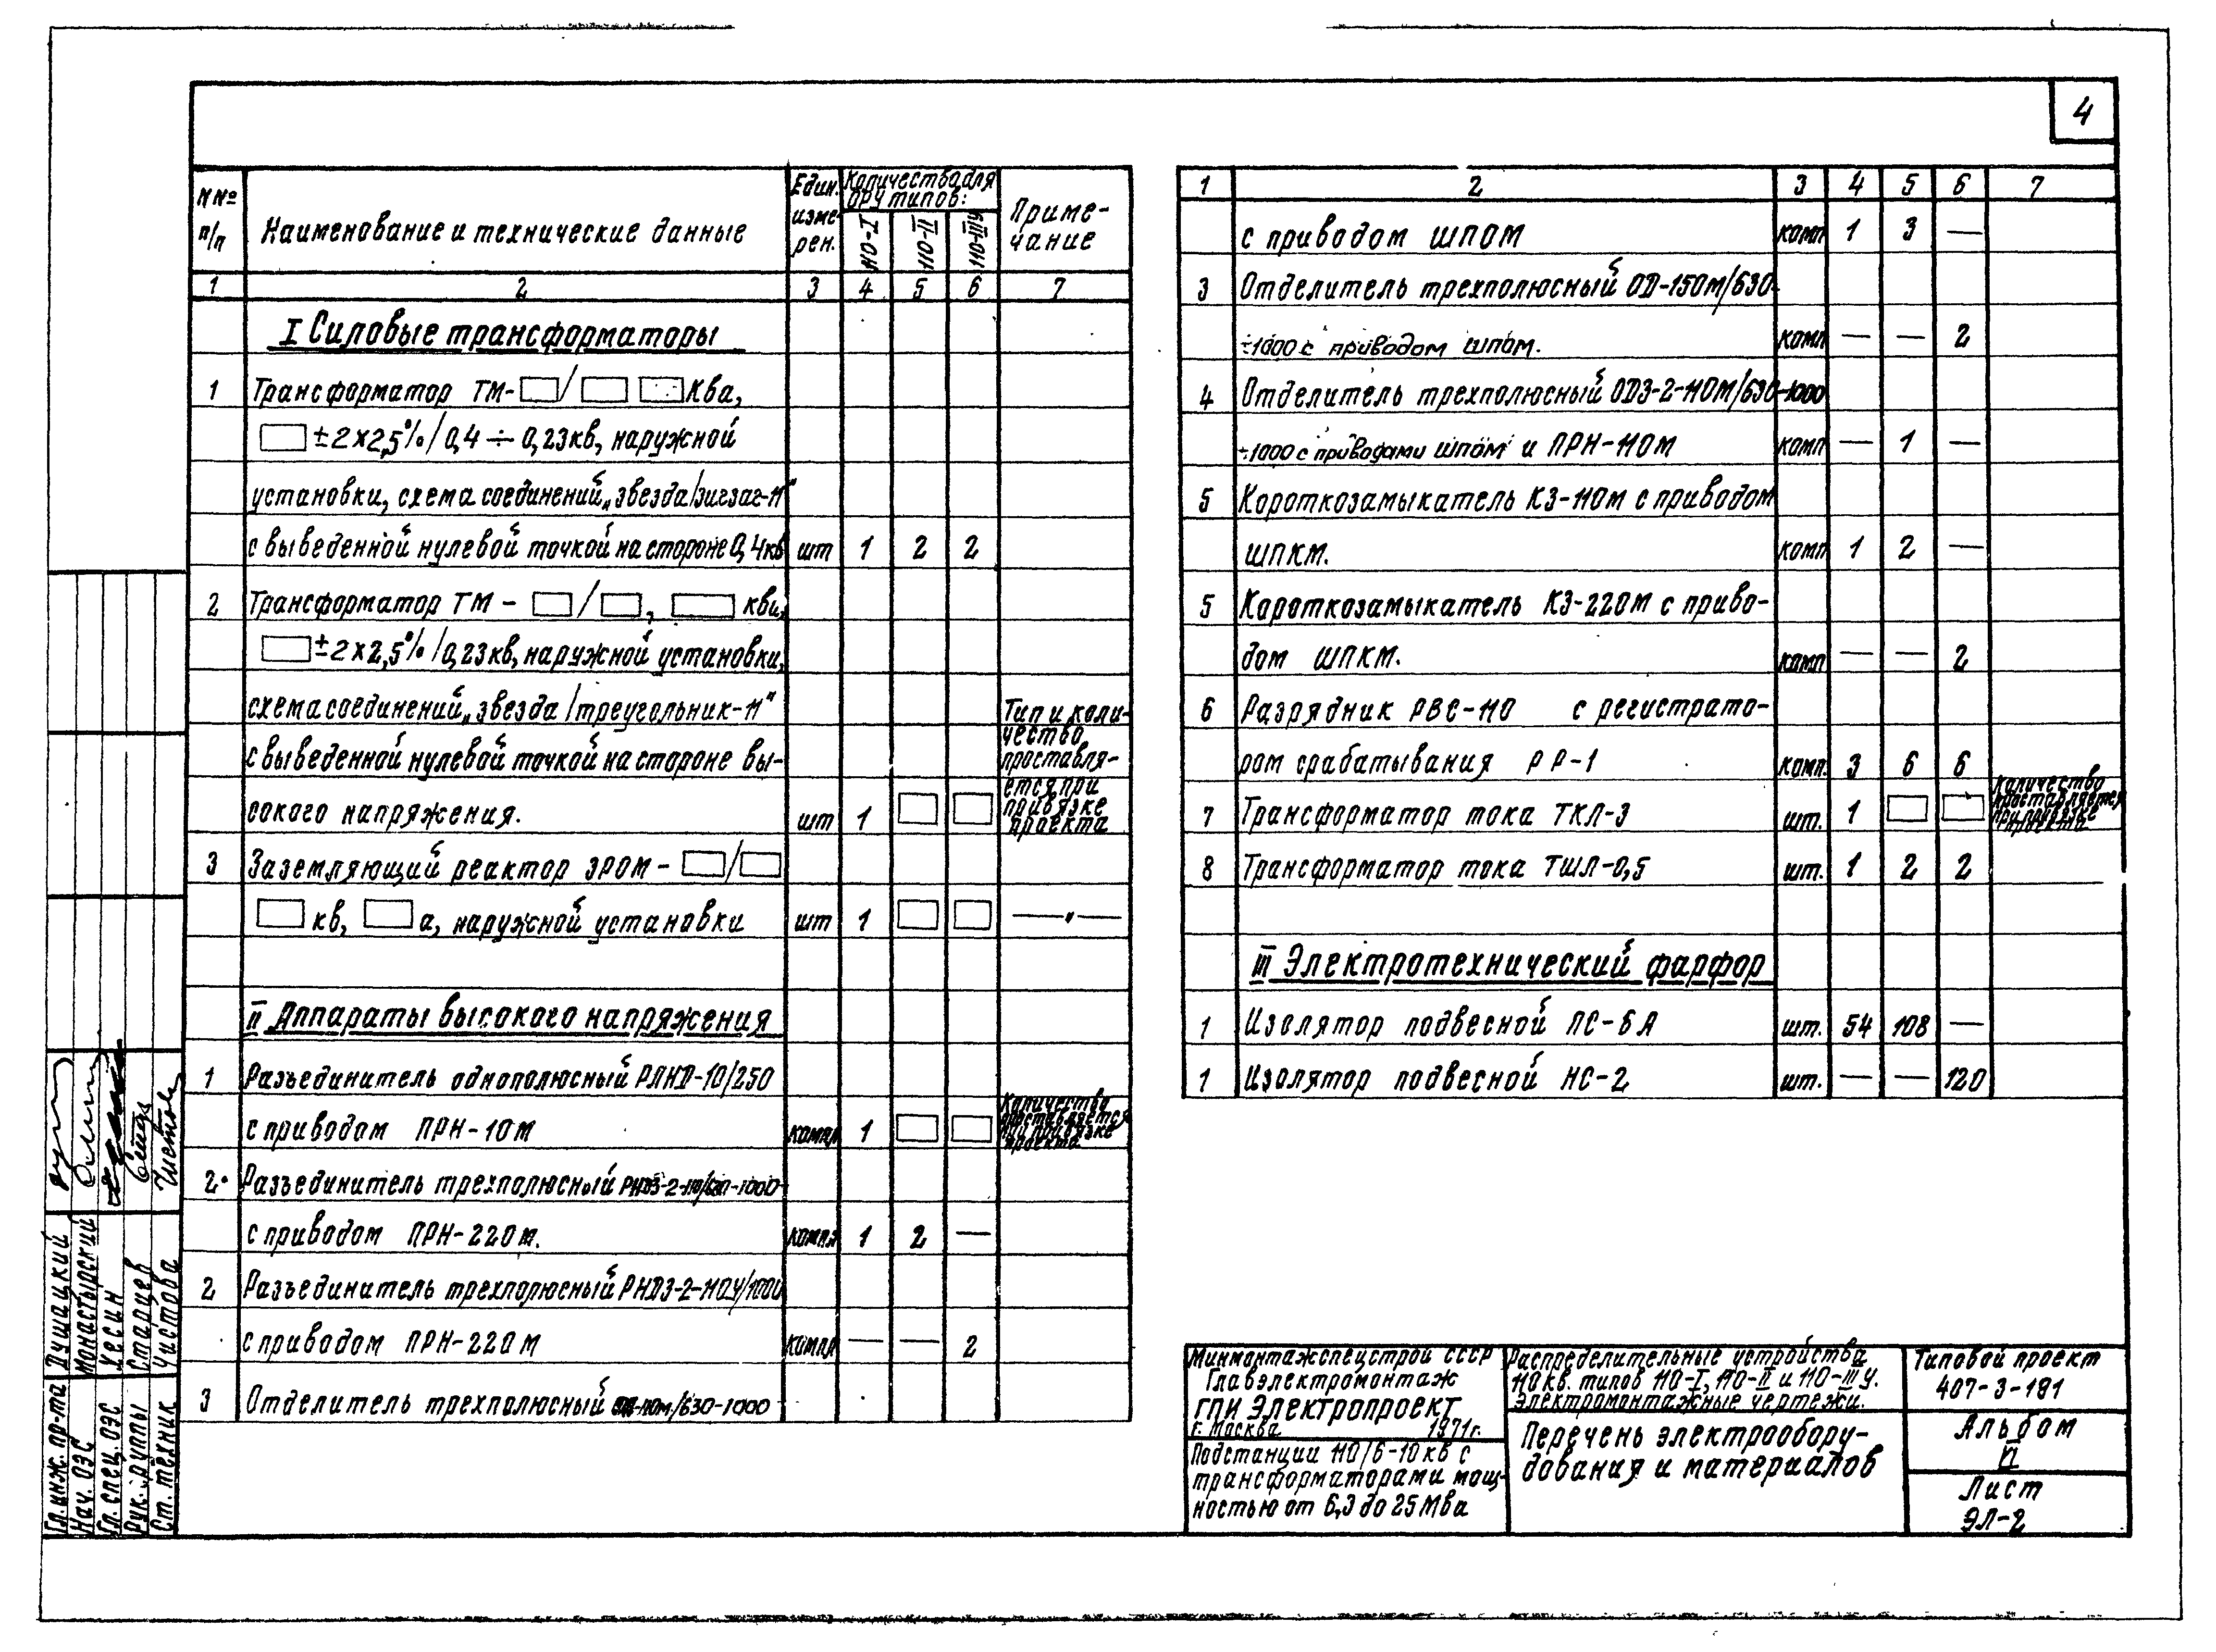 4
N№ п/п
Наименование и технические данные
Един. измерен.
Количество для ОРУ типов:
110-I
110-II
110-IIIУ
Примечание
1 2 3 4 5 6 7
I Силовые трансформаторы
1 Трансформатор ТМ-□/□ □ ква,
□±2×2,5%/0,4÷0,23кв, наружной
установки, схема соединений „звезда/зигзаг-11"
с выведенной нулевой точкой на стороне 0,4кв шт 1 2 2
2 Трансформатор ТМ-□/□, □ ква,
□±2×2,5%/0,23кв, наружной установки,
схема соединений „звезда/треугольник-11"
с выведенной нулевой точкой на стороне вы-
сокого напряжения. шт 1 □ □
Тип и коли-
чество
проставля-
ется при
привязке
проекта
3 Заземляющий реактор ЗРОМ-□/□
□кв, □а, наружной установки шт 1 □ □ —"—
II Аппараты высокого напряжения
1 Разъединитель однополюсный РЛНД-10/250
с приводом ПРН-10м компл 1 □ □
Количество
проставляется
при привязке
проекта
2. Разъединитель трехполюсный РНДЗ-2-110/630-1000
с приводом ПРН-220м. компл 1 2 —
2 Разъединитель трехполюсный РНДЗ-2-110У/1000
с приводом ПРН-220м компл — — 2
3 Отделитель трехполюсный /630-1000
1 2 3 4 5 6 7
с приводом ШПОМ комп 1 3 —
3 Отделитель трехполюсный ОД-150М/630-
÷1000 с приводом ШПОМ. комп — — 2
4 Отделитель трехполюсный ОДЗ-2-110М/630-1000
÷1000 с приводами ШПОМ и ПРН-110м комп — 1 —
5 Короткозамыкатель КЗ-110м с приводом
ШПКМ. комп 1 2 —
5 Короткозамыкатель КЗ-220М с приво-
дом ШПКМ. комп — — 2
6 Разрядник РВС-110 с регистрато-
ром срабатывания РР-1 комп. 3 6 6
7 Трансформатор тока ТКЛ-3 шт. 1 □ □
Количество
проставляется
при привязке
проекта
8 Трансформатор тока ТШЛ-0,5 шт. 1 2 2
III Электротехнический фарфор
1 Изолятор подвесной ПС-6А шт. 54 108 —
1 Изолятор подвесной НС-2 шт. — — 120
Гл. инж. пр-та Душацкий
Нач. ОЭС Монастырский
Гл. спец. ОЭС Хесин
Рук. группы Старцев
Ст. техник Чистова
Минмонтажспецстрой СССР
Главэлектромонтаж
ГПИ Электропроект
г. Москва 1971г.
Подстанции 110/6-10кв с
трансформаторами мощ-
ностью от 6,3 до 25Мва
Распределительные устройства
110кв. типов 110-I, 110-II и 110-III У.
Электромонтажные чертежи.
Перечень электрообору-
дования и материалов
Типовой проект
407-3-191
Альбом
VI
Лист
ЭЛ-2